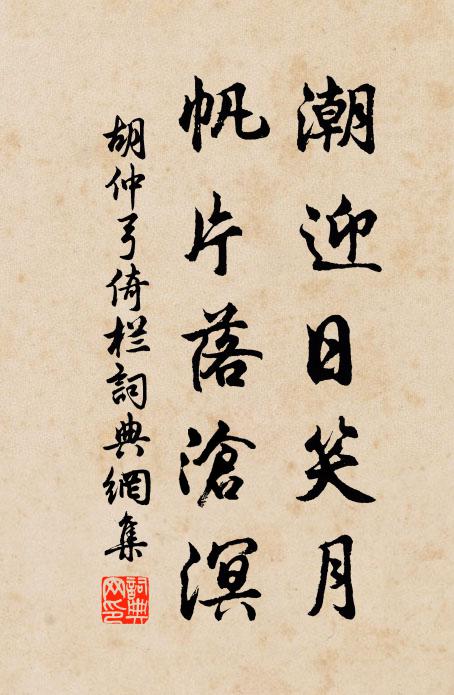 潮迎日笑月
帆片落滄溟
胡仲弓倚栏詞典網集
詞典网印